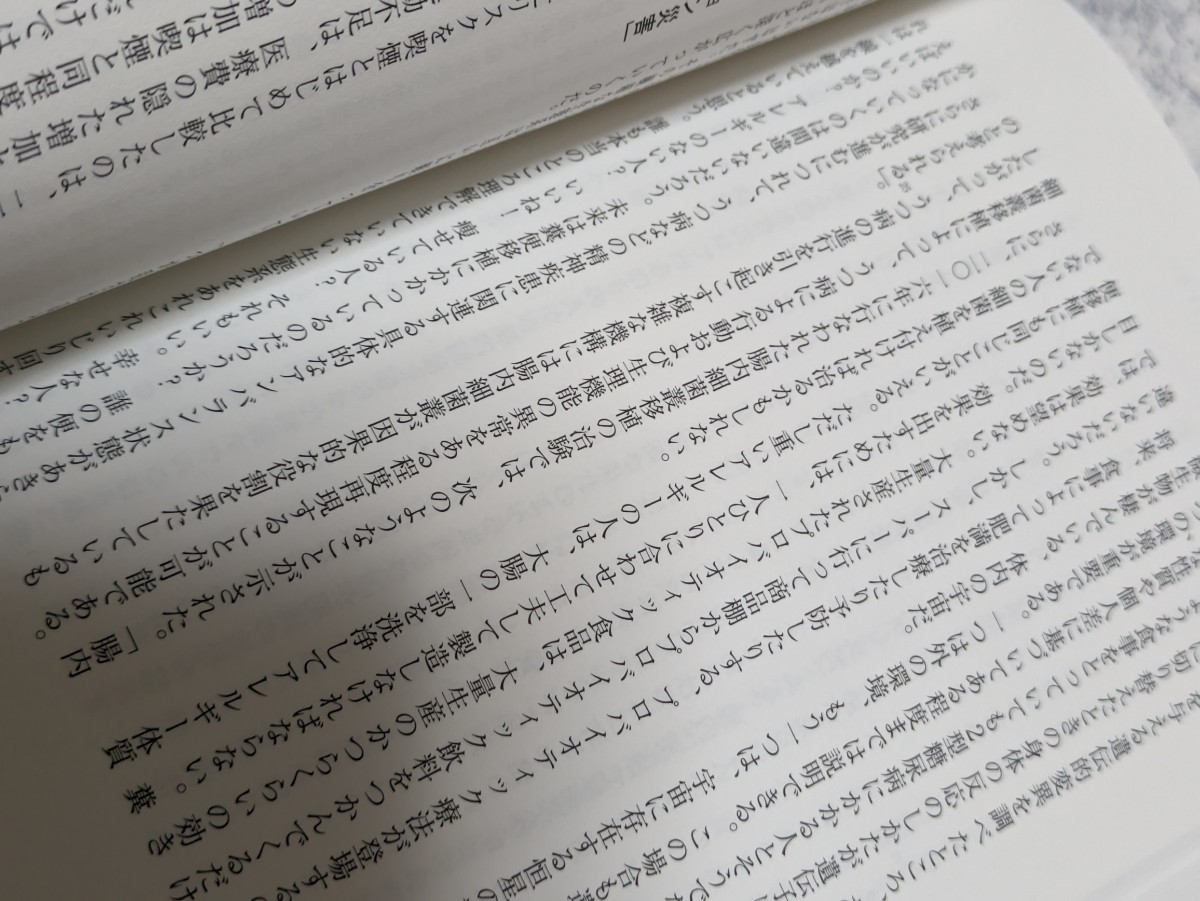 を与える遺伝的変異を調べたところ、
に切り替えたときの身体の反応のしかたが遺伝子に
うな食事をとっていても2型糖尿病にかかる人とそうでな
性質や個人差に基づいてある程度までは説明できる。この場合も遺
の環境が重要である。一つは外の環境、もう一つは、宇宙に存在する恒星の
生物が棲んでいる、体内の宇宙だ。
将来、食事によって肥満を治療したり予防したりする、プロバイオティック療法が登場する
違いないだろう。しかし、スーパーに行って商品棚からプロバイオティック飲料をつかんでくるだけ
では、効果は認めない。大量生産されたプロバイオティック食品は、大量生産のかつらくらいの効き
目しかないのだ。効果を出すためには、一人ひとりに合わせて工夫して製造しなければならない。糞
便移植にも同じことがいえる。ただし重いアレルギーの人は、大腸の一部を洗浄してアレルギー体質
でない人の細菌を植え付ければ治るかもしれない。
さらに、二〇一六年に行なわれた腸内細菌叢移植の治験では、次のようなことが示された。「腸内
細菌叢移植によって、うつ病による行動および生理機能の異常をある程度再現することが可能である。
したがって、うつ病の進行を引き起こす複雑な機構には腸内細菌叢が因果的な役割を果たしているも
のと考えられる」。
さらに研究が進むにつれて、うつ病などの精神疾患に関連する具体的なアンバランス状態があきら
かになっていくのは間違いないだろう。未来は糞便移植にかかっているのだろうか？ 誰の便をも
えばいいのか？ アレルギーのない人？ いいね！ 痩せている人？ それもいい。幸せな人？
れは一線を越えていると思う。誰も本当のところ理解できていない生態系をあれこれいじり回す
ン災害」
リスクを喫煙とはじめて比較したのは、二
動不足は、医療費の隠れた増加
の増加は喫煙と同程度
だけでは